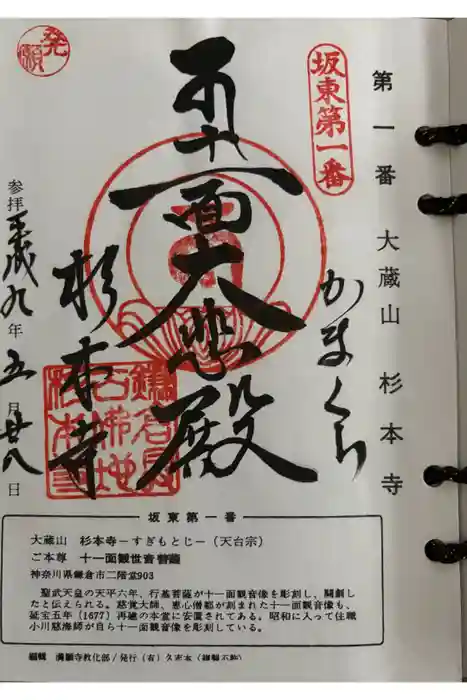 第一番 大蔵山 杉本寺
坂東第一番
かまくら
十一面大悲殿
発願
杉本寺
参拝 平成九年 五月廿八日
坂東第一番
大蔵山 杉本寺－すぎもとじ－（天台宗）
ご本尊 十一面観世音菩薩
神奈川県鎌倉市二階堂903
聖武天皇の天平六年、行基菩薩が十一面観音像を彫刻し、開創し
たと伝えられる。慈覚大師、恵心僧都が刻まれた十一面観音像も、
延宝五年（1677）再建の本堂に安置されてある。昭和に入って住職
小川慈海師が自ら十一面観音像を彫刻している。
編輯 満願寺教化部／発行（有）久志本